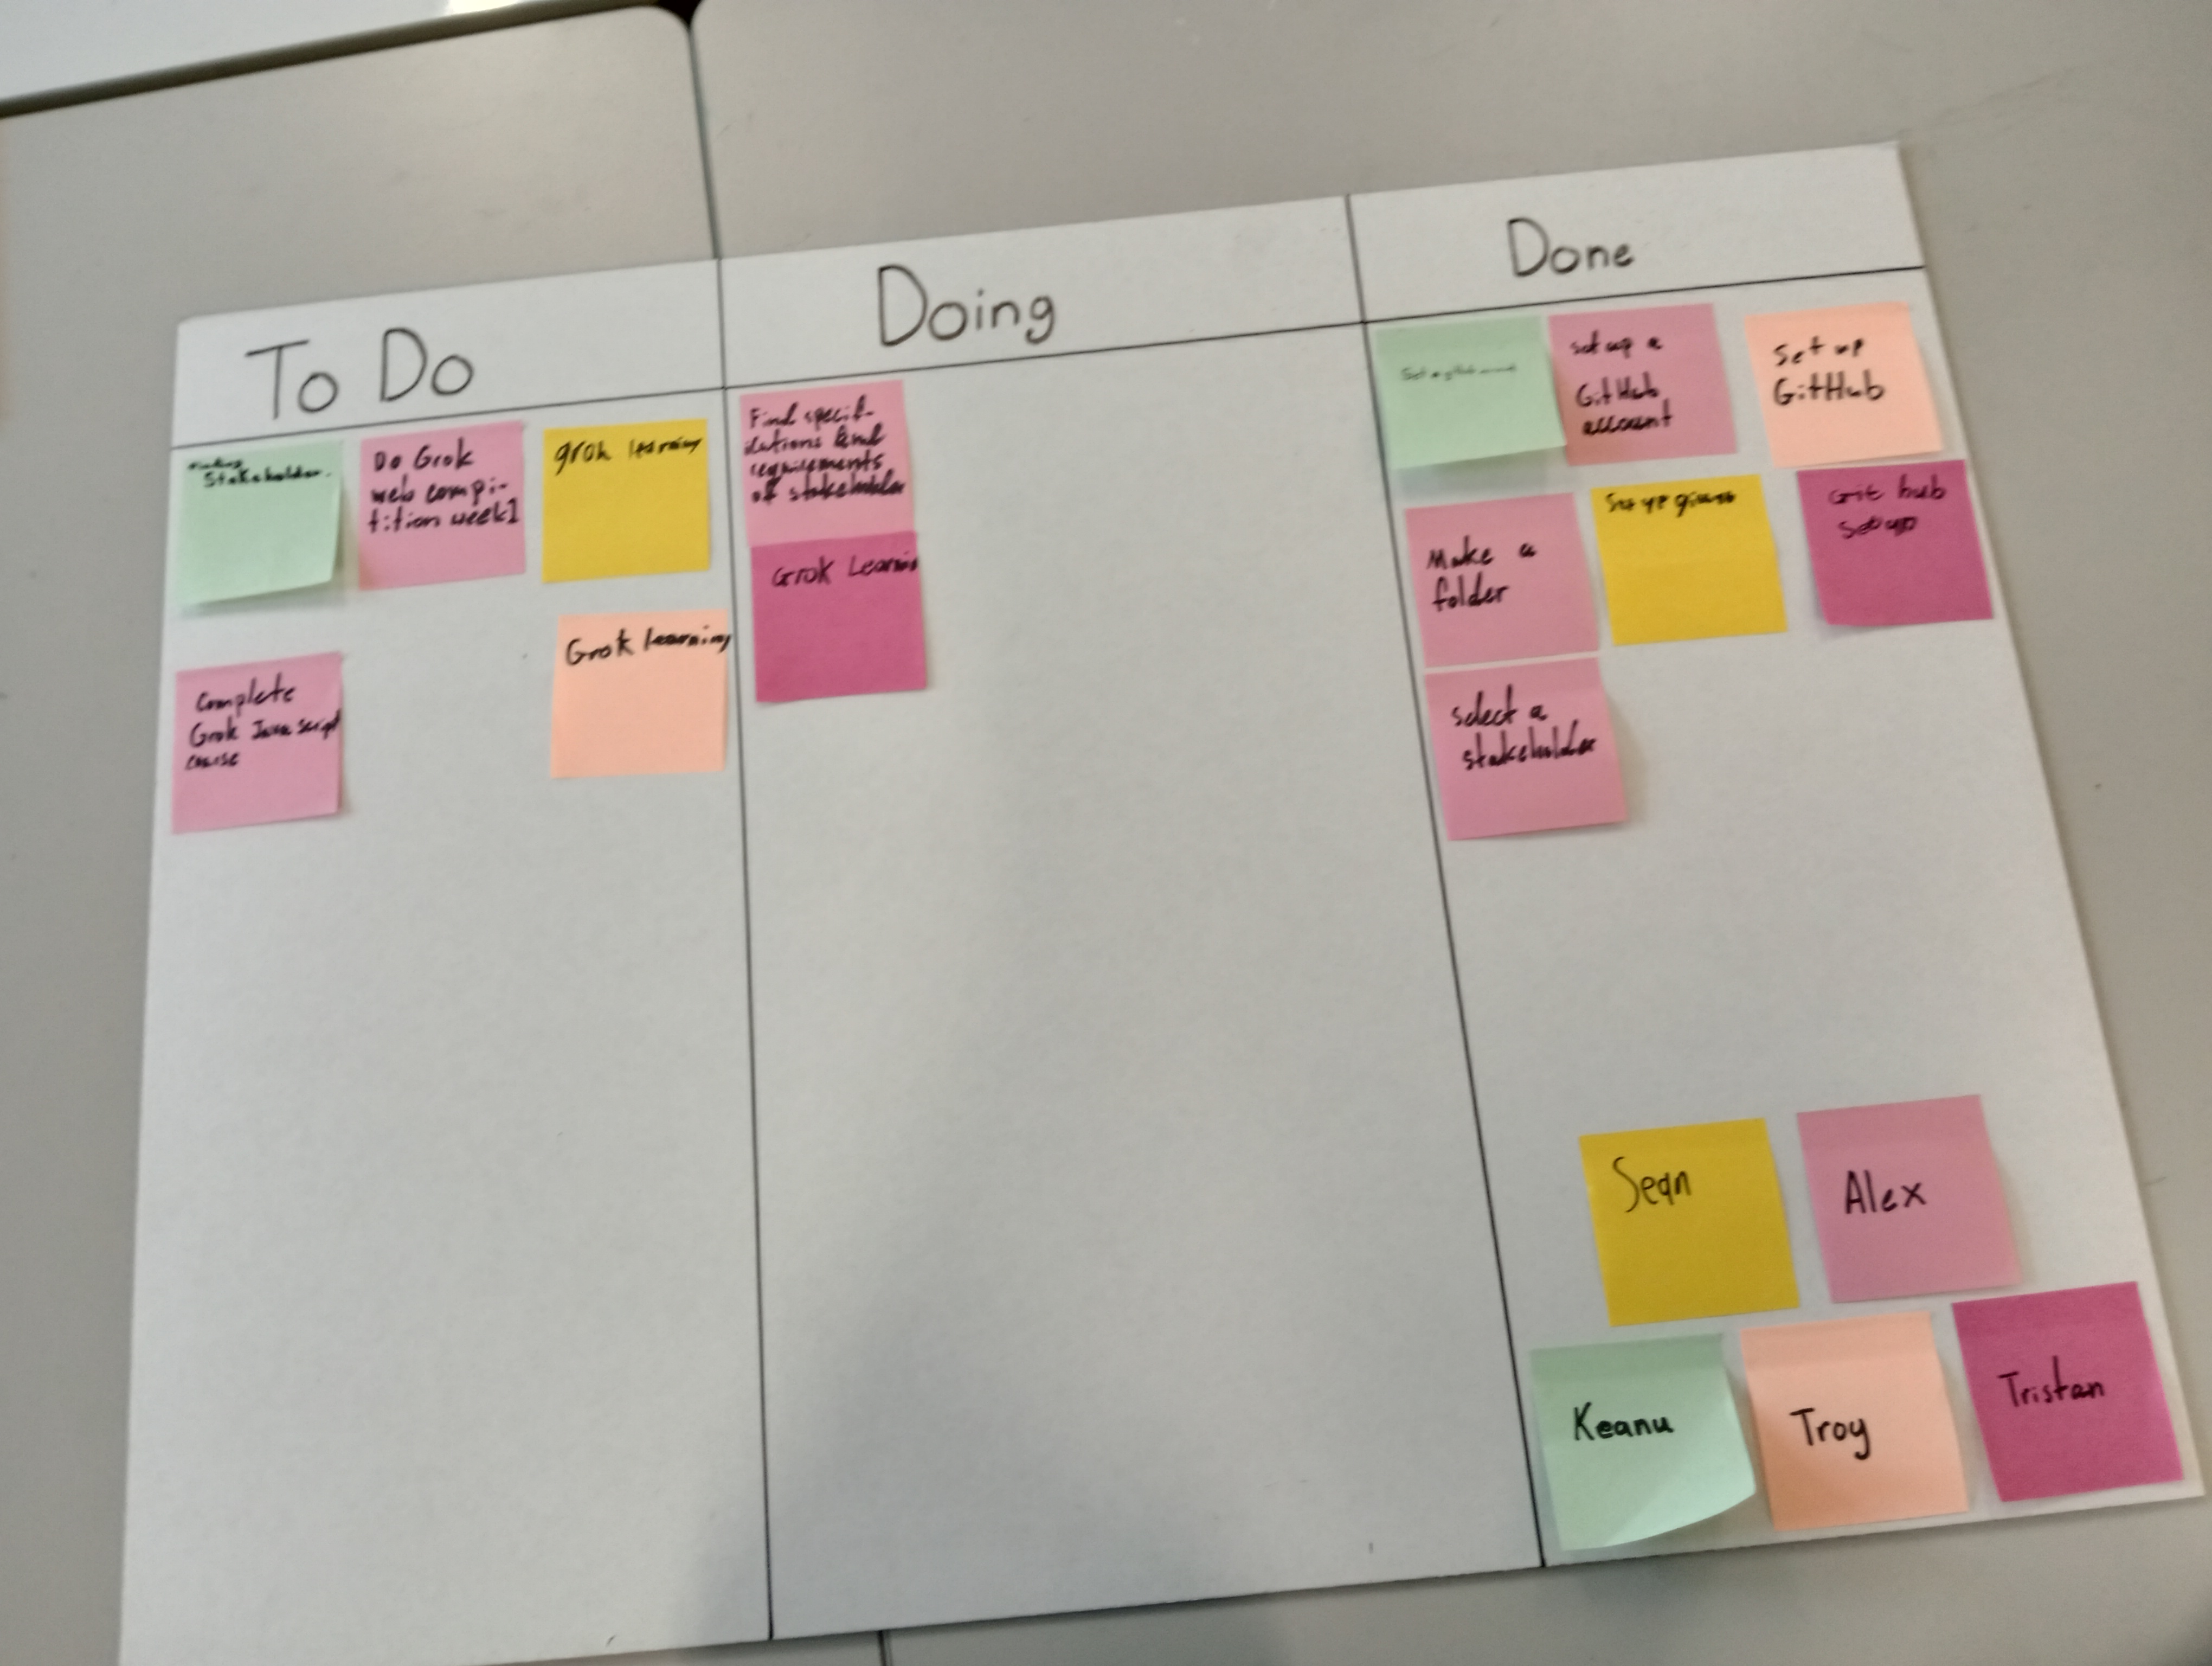 To Do
Doing
Done
Finding
Stakeholder.
Do Grok
web compi-
tition week1
grok learning
Complete
Grok JavaScript
course
Grok learning
Find specif-
ications and
requirements
of stakeholder
Grok Learnin
set up a
GitHub
account
Set up
GitHub
Make a
folder
Set up
Git hub
set up
select a
stakeholder
Sean
Alex
Keanu
Troy
Tristan